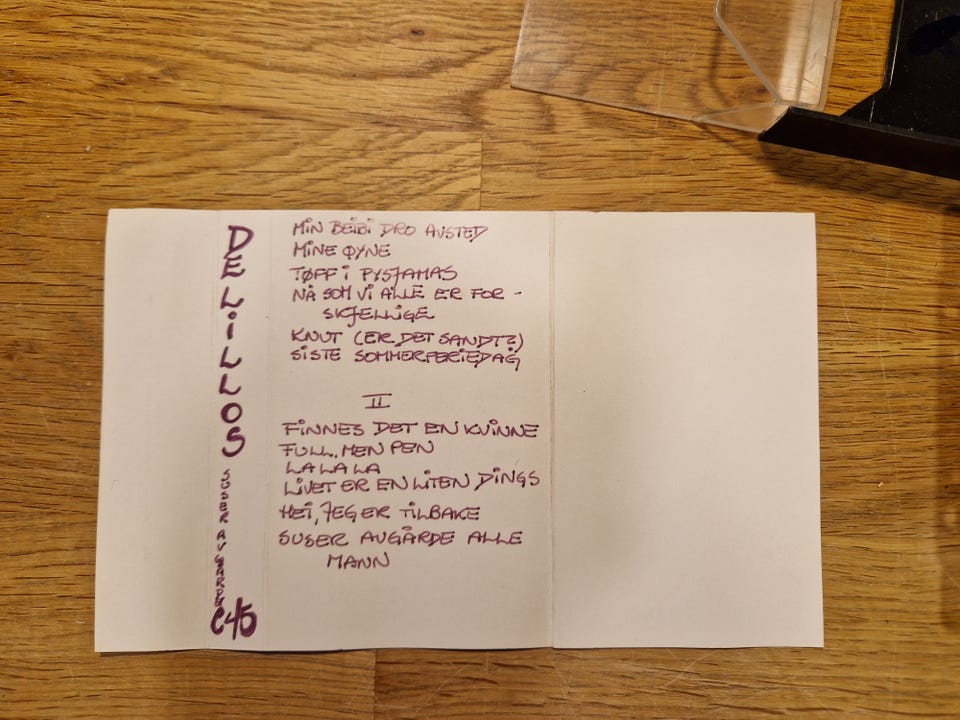 DE LiLLOS
SUSER AVGÅRDE
C45
MiN BEiBi DRO AVSTED
MiNE ØYNE
TØFF i PYSJAMAS
NÅ SOM Vi ALLE ER FOR-
SKJELLiGE
KNUT (ER DET SANDT?)
SiSTE SOMMERFERIEDAG
II
FiNNES DET EN KVINNE
FULL, MEN PEN
LA LA LA
LiVET ER EN LITEN DiNGS
HEi, JEG ER TiLBAKE
SUSER AVGÅRDE ALLE
MANN